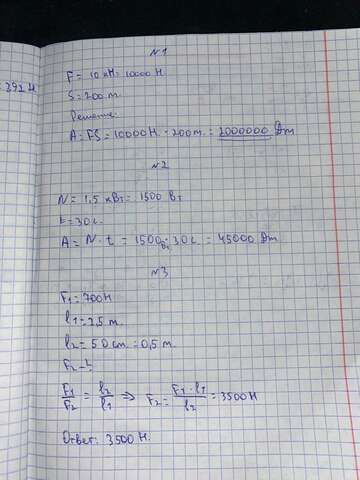 392 Н
№1
F = 10 кН = 10000 Н
S = 200 m.
Решение:
A = FS = 10000 Н · 200 m. = 2000000 Dm
№2
N = 1,5 кВт = 1500 Вт
t = 30 с.
A = N · t = 1500 Вт · 30 с = 45000 Dm
№3
F₁ = 700 Н
l₁ = 2,5 m.
l₂ = 50 cm. = 0,5 m.
F₂ - ?
F₁/F₂ = l₂/l₁ ⇒ F₂ = F₁ · l₁/l₂ = 3500 Н
Ответ: 3500 Н.